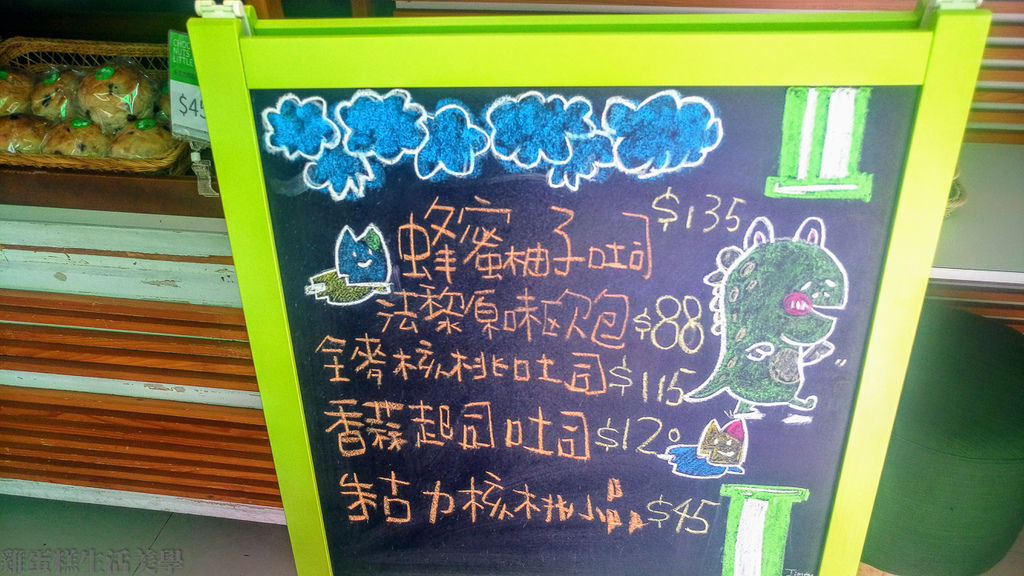 CHOC
NUTS
LITTLE
$45
蜂蜜柚子吐司 $135
法黎原味欧包 $88
全麥核桃吐司 $115
香蒜起司吐司 $120
朱古力核桃小品 $45
雞蛋糕生活美學